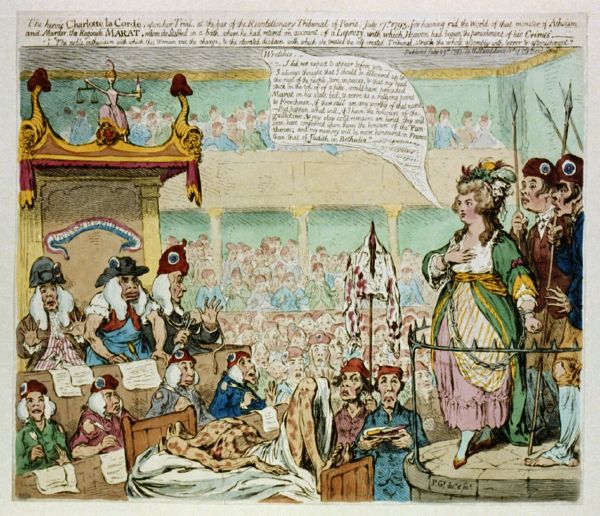 The heroic Charlotte la Cordé, upon her Trial, at the bar of the Revolutionary Tribunal of Paris, July 17th 1793, for having rid the World of that monster of Atheism
and Murder, the Regicide MARAT, whom she Stabbed in a bath, where he had retired on account of a Leprosy, with which, Heaven had begun the punishment of his Crimes.
"The noble enthusiasm with which this Woman met the charge, & the elevated disdain with which she treated the self created Tribunal, struck the whole assembly with terror & astonishment."
Wretches,
I did not expect to appear before you
I always thought that I should be delivered up to
the rage of the people, torn in pieces, & that my head,
stuck on the top of a pike, would have preceded
Marat on his state bed, to serve as a rallying point
to Frenchmen, if there still are any worthy of that name.
But, happen what will, if I have the honours of the
guillotine, & my clay cold remains are buried, they will
soon have conferred upon them the honours of the Pan
theon; and my memory will be more honoured in France
than that of Judith in Bethulia.